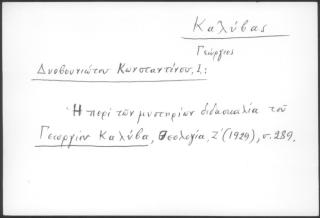 Καλύβας
Γεώργιος
Δυοβουνιώτου Κωνσταντίνου, Ι.:
Ἡ περί τῶν μυστηρίων διδασκαλία τοῦ
Γεωργίου Καλύβα, Θεολογία, Ζ´ (1929), σ. 289.